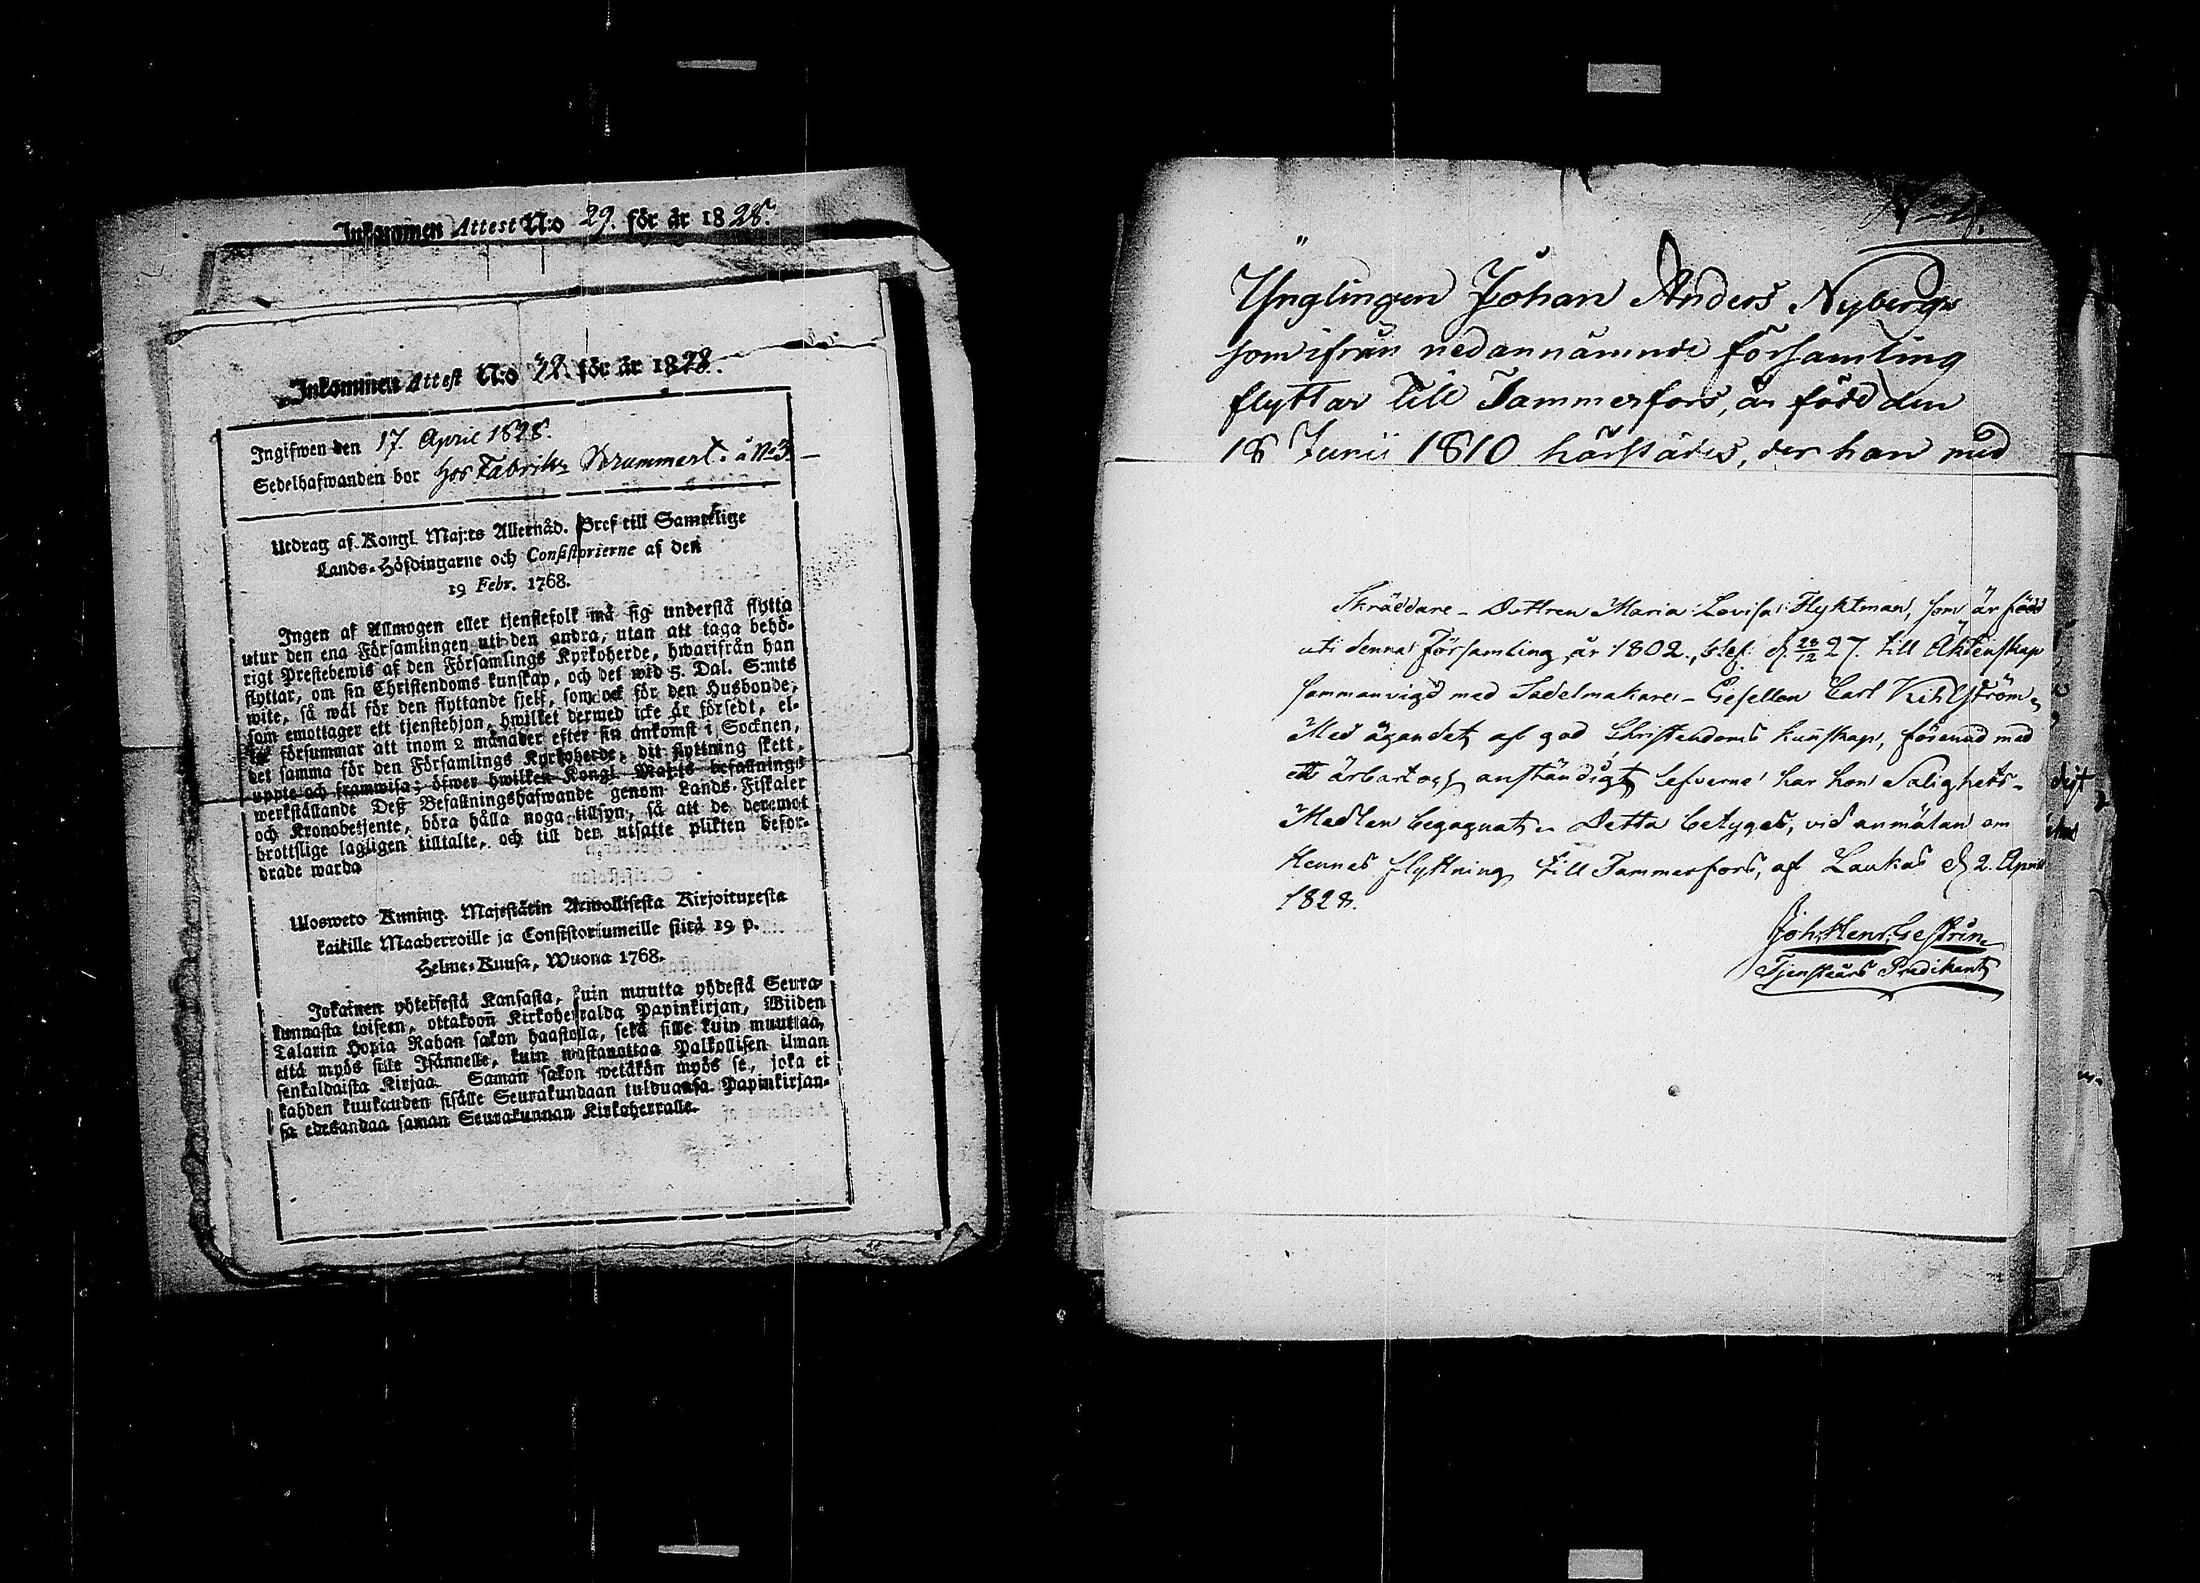 Inkommen Attest N:o 29. för år 1828.
Inkommen Attest N:o 28. för år 1828.
Ingifwen den 17. April 1828.
Sedelhafwanden bor hos Fabrik: Drummert. å No 3.
Utdrag af Kongl. Maj:ts Allernåd. Bref till Samtelige
Lands-Höfdingarne och Consistorierne af den
19 Febr. 1768.
Ingen af Allmogen eller tjenstefolk må sig understå flytta
utur den ena Församlingen uti den andra, utan att taga behö-
rigt Prestebewis af den Församlings Kyrkoherde, hwarifrån han
flyttar, om sin Christendoms kunskap, och det wid 5. Dal. S:mts
wite, så wäl för den flyttande sjelf, som ock för den Husbonde,
som emottager ett tjenstehjon, hwilket dermed icke är försedt, el-
ler försummar att inom 2 månader efter sin ankomst i Socknen,
det samma för den Församlings Kyrkoherde, dit flyttning skett,
uppte och framwisa; öfwer hwilken Kongl. Maj:ts befallnings
werkställande Deß Befallningshafwande genom Lands-Fiskaler
och Kronobetjente, böra hålla noga tillsyn, så att de deremot
brottslige lagligen tilltalte, och till den utsatte plikten befor-
drade warda
Ulosweto Kuning. Majestätin Armollisesta Kirjoituxesta
kaikille Maaherroille ja Consistoriumeille siitä 19 p.
Helme-Kuusa, Wuona 1768.
Jokainen yhteisestä Kansasta, kuin muutta yhdestä Seura-
kunnasta toiseen, ottakoon Kirkoherralda Papinkirjan, Wiiden
Talarin Hopia Rahan sakon haastolla, sekä sille kuin muuttaa,
että myös sille Isännelle, kuin wastanottaa Palkollisen ilman
senkaldaista Kirjaa. Saman sakon wetäkön myös se, joka ei
kahden kuukauden sisälle Seurakundaan tulduansa Papinkirjan-
sa edesandaa saman Seurakunnan Kirkoherralle.
Ynglingen Johan Anders Nyberg
som ifrån nedannämnde församling
flyttar till Tammerfors, är född den
18 Junii 1810 härstädes, der han med
Skräddare-Dottren Maria Lovisa Flyktman, som är född
uti denna Församling år 1802., blef d. 28/12 27. till Äktenskap
sammanvigd med Sadelmakare-Gesellen Carl Kihlström.
Med ägandet af god Christendoms kunskap, förenad med
ett ärbart och anständigt lefverne har hon Salighets-
Medlen begagnat. Detta betygas, vid anmälan om
Hennes flyttning till Tammerfors, af Laukas d. 2. April
1828.
Joh: Henr: Gestrin
Tjenstaårs Predikant